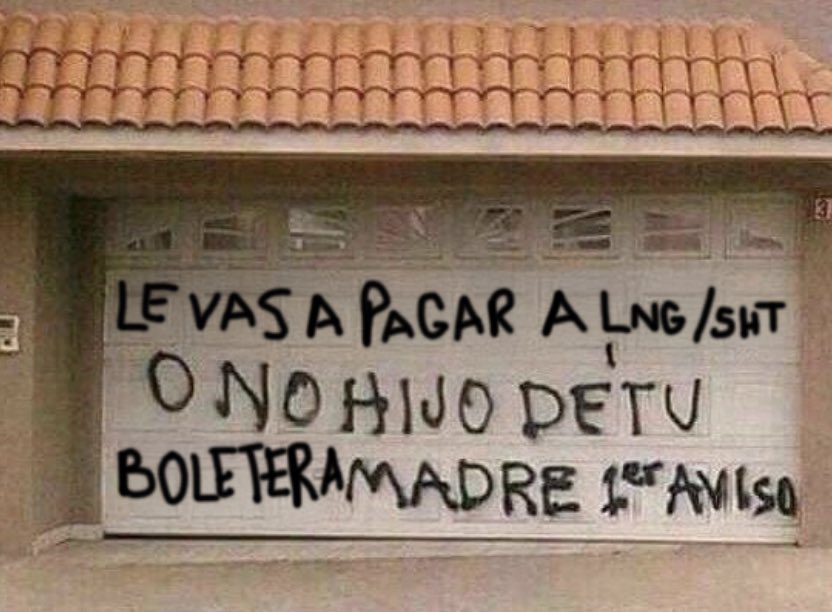 LE VAS A PAGAR A LNG/SHT
O NO HIJO DE TU
BOLETERA MADRE 1er AVISO
3